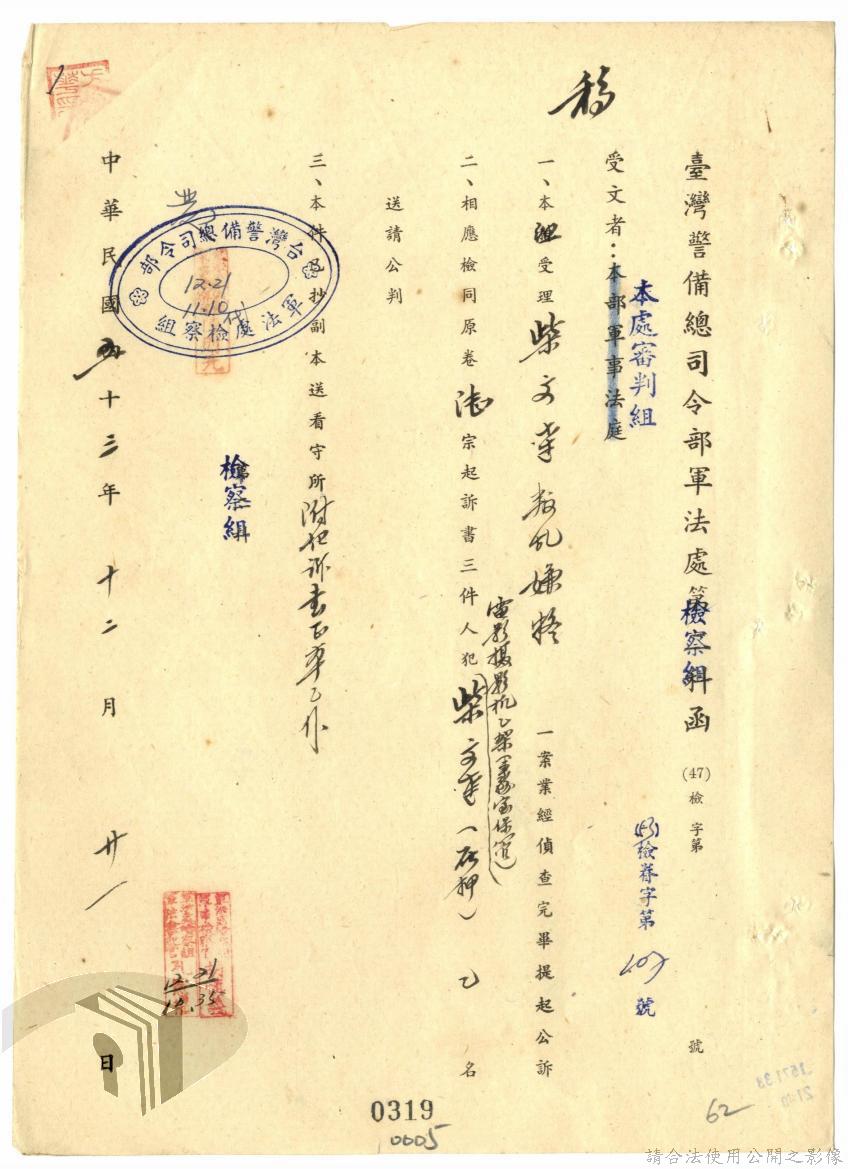 稿
臺灣警備總司令部軍法處檢察組函
(47)檢字第 號
(53)檢 字第 號
受文者：本部軍事法庭
本處審判組
一、本組受理柴文華叛亂嫌疑一案業經偵查完畢提起公訴
二、相應檢同原卷 宗起訴書三件人犯柴文華(在押)乙名
電影攝影機乙架
送請公判
三、本件 抄副本送看守所附起訴書正本乙件
檢察組
台灣警備總司令部
12.21
11.10
軍法處檢察組
中華民國五十三年十二月廿一日
12.21
14.35
0319
0005
62
請合法使用公開之影像